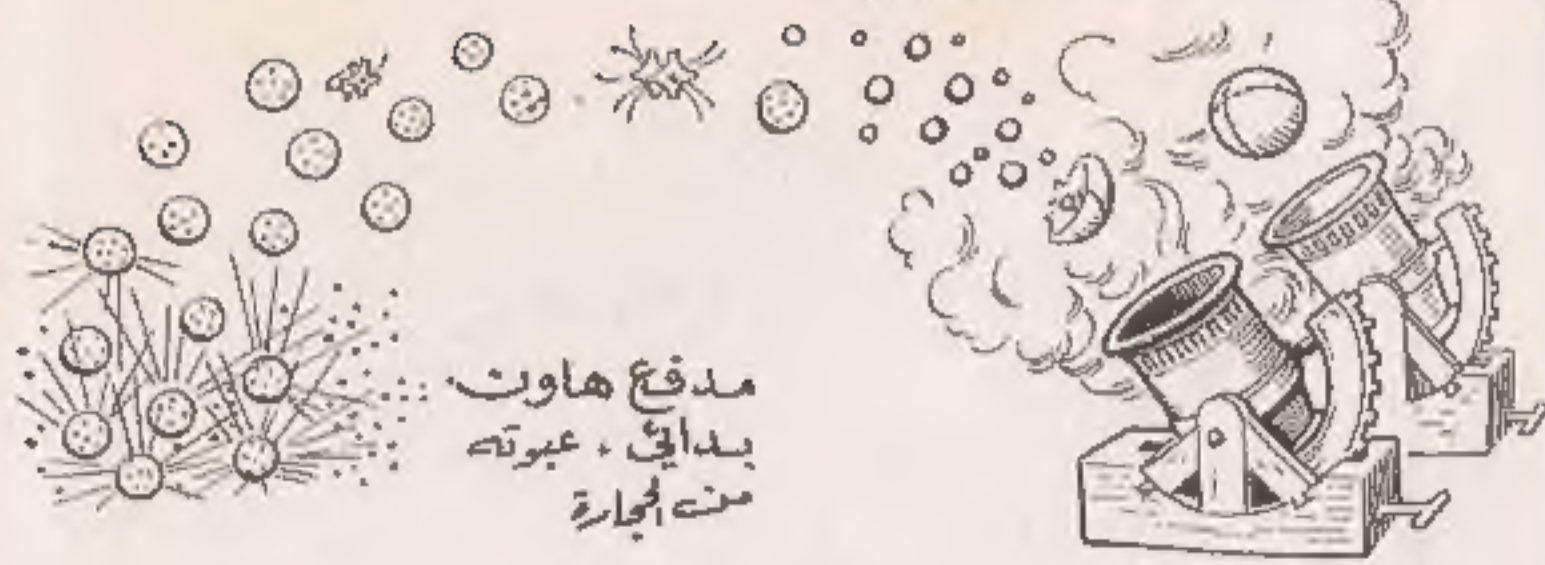 مدفع هاون
بدائي ، عبوته
من الحجارة